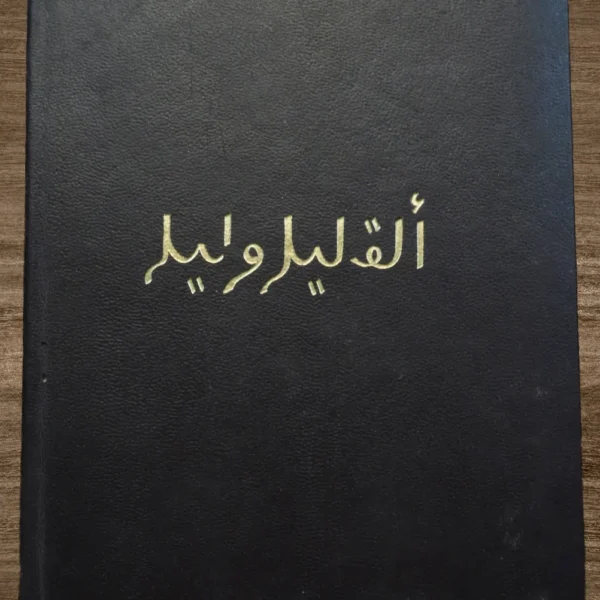 ألق ليلر وليلر